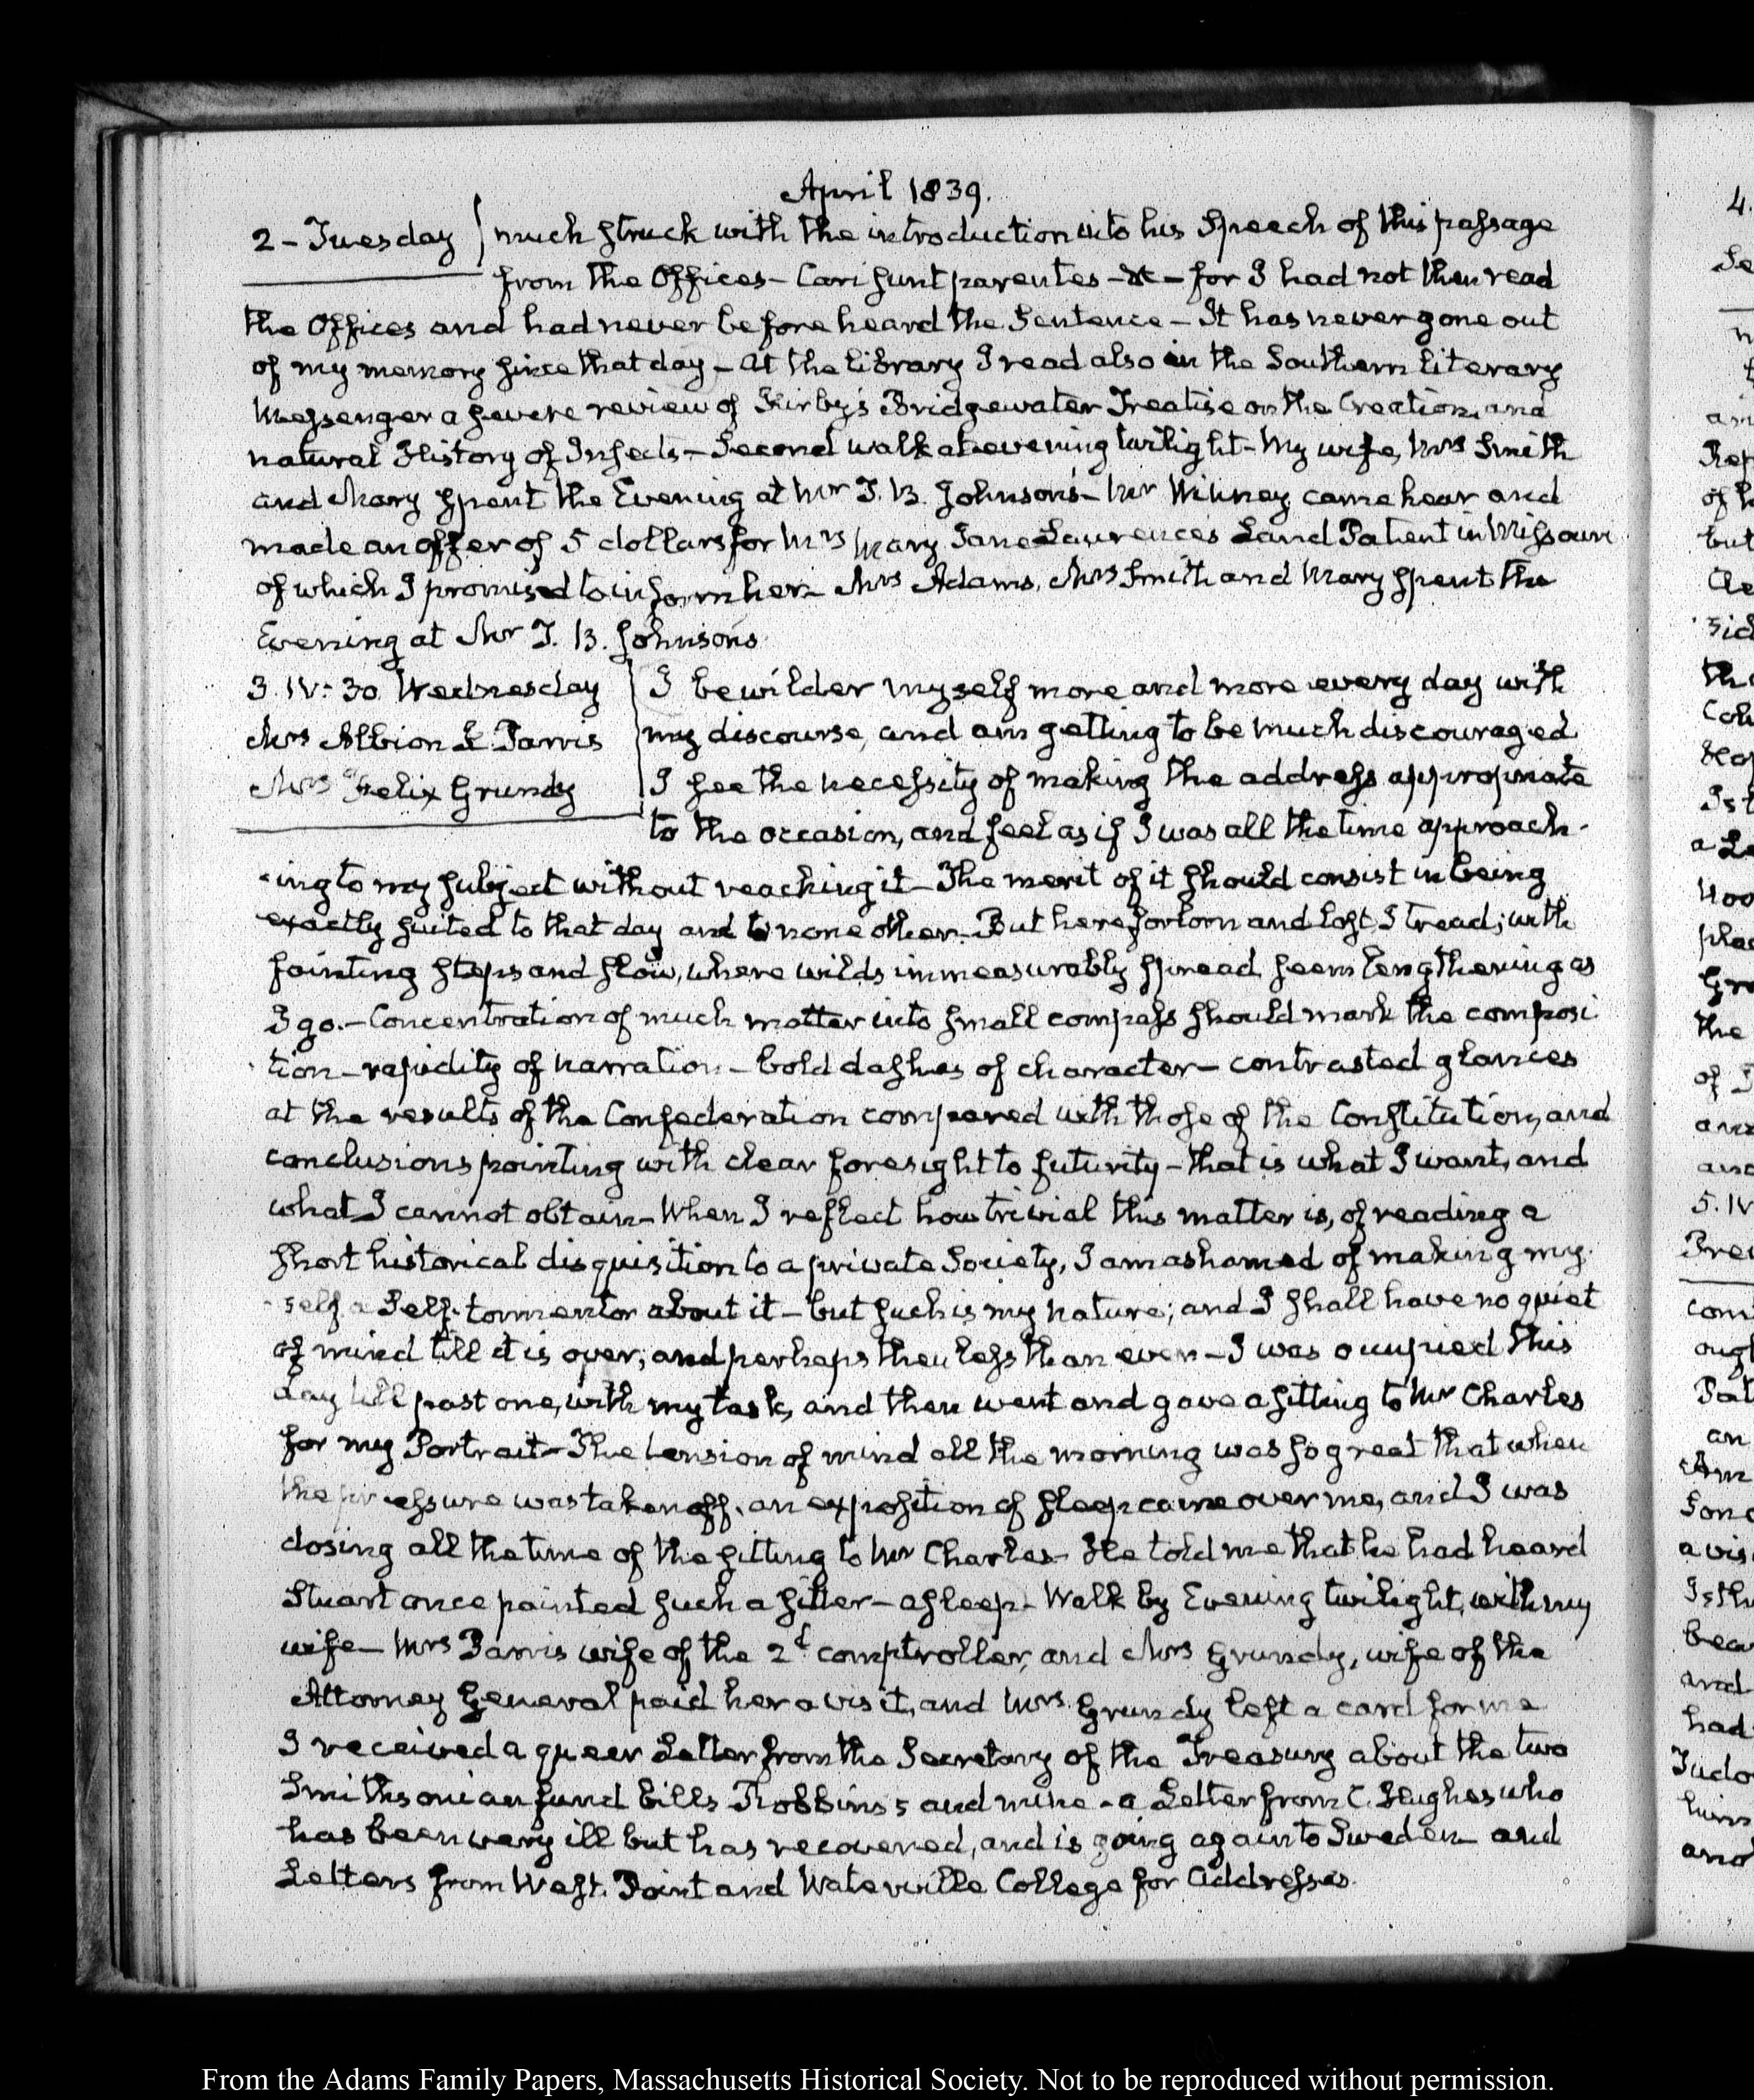 April 1839.
2 - Tuesday
much struck with the introduction into his Speech of this passage
from the Offices - Cari sunt parentes - &c - for I had not then read
the Offices and had never before heard the Sentence - It has never gone out
of my memory since that day - At the Library I read also in the Southern Literary
Messenger a severe review of Kirby's Bridgewater Treatise on the Creation, and
natural History of Insects - Second walk at evening twilight - My wife, Mrs Smith
and Mary spent the Evening at Mr T. B. Johnson's - Mr came hear and
made an offer of 5 dollars for Mrs Mary Jane Lawrence's Land Patent in Missouri
of which I promised to inform her - Mrs Adams, Mrs Smith and Mary spent the
Evening at Mr T. B. Johnsons
3. IV: 30. Wednesday
Mrs Albion K Parris
Mrs Felix Grundy
I bewilder myself more and more every day with
my discourse, and am getting to be much discouraged
I see the necessity of making the address appropriate
to the occasion, and feel as if I was all the time approach-
-ing to my subject without reaching it - The merit of it should consist in being
exactly suited to that day and to none other - But here forlorn and lost I tread; with
fainting steps and slow, where wilds immeasurably spread seem lengthening as
I go. - Concentration of much matter into small compass should mark the composi
-tion - rapidity of narration - bold dashes of character - contrasted glances
at the results of the Confederation compared with those of the Constitution, and
conclusions pointing with clear foresight to futurity - that is what I want, and
what I cannot obtain - When I reflect how trivial this matter is, of reading a
short historical disquisition to a private Society, I am ashamed of making my-
-self a Self-tormentor about it - but such is my nature; and I shall have no quiet
of mind till it is over; and perhaps then less than ever - I was occupied this
day till past one, with my task, and then went and gave a sitting to Mr Charles
for my Portrait - The tension of mind all the morning was so great that when
the pressure was taken off, an exposition of sleep came over me, and I was
dosing all the time of the sitting to Mr Charles - He told me that he had heard
Stuart once painted such a sitter - asleep - Walk by Evening twilight, with my
wife - Mrs Parris wife of the 2d comptroller, and Mrs Grundy, wife of the
Attorney General paid her a visit, and Mrs Grundy left a card for me
I received a queer Letter from the Secretary of the Treasury about the two
Smithsonian fund bills Robbins's and mine - a Letter from C. Hughes who
has been very ill but has recovered, and is going again to Sweden - and
Letters from West-Point and Waterville College for Addresses.
From the Adams Family Papers, Massachusetts Historical Society. Not to be reproduced without permission.